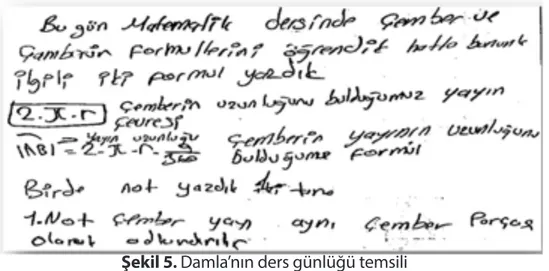 Bugön Matematik dersinde Çember ve
Çemberin formullerini öğrendik hatta bununla
ilgili iki formul yazdık
2.π.r Çemberin uzunluğunu bulduğumuz yayın
çevresi
|AB| = Yayın uzunluğu 2.π.r. /360 Çemberin yayının uzunluğunu
bulduğumuz formül
Birde not yazdık tane
1.Not Çember yayı aynı Çember Parçası
olarak adlandırılır
Şekil 5. Damla'nın ders günlüğü temsili